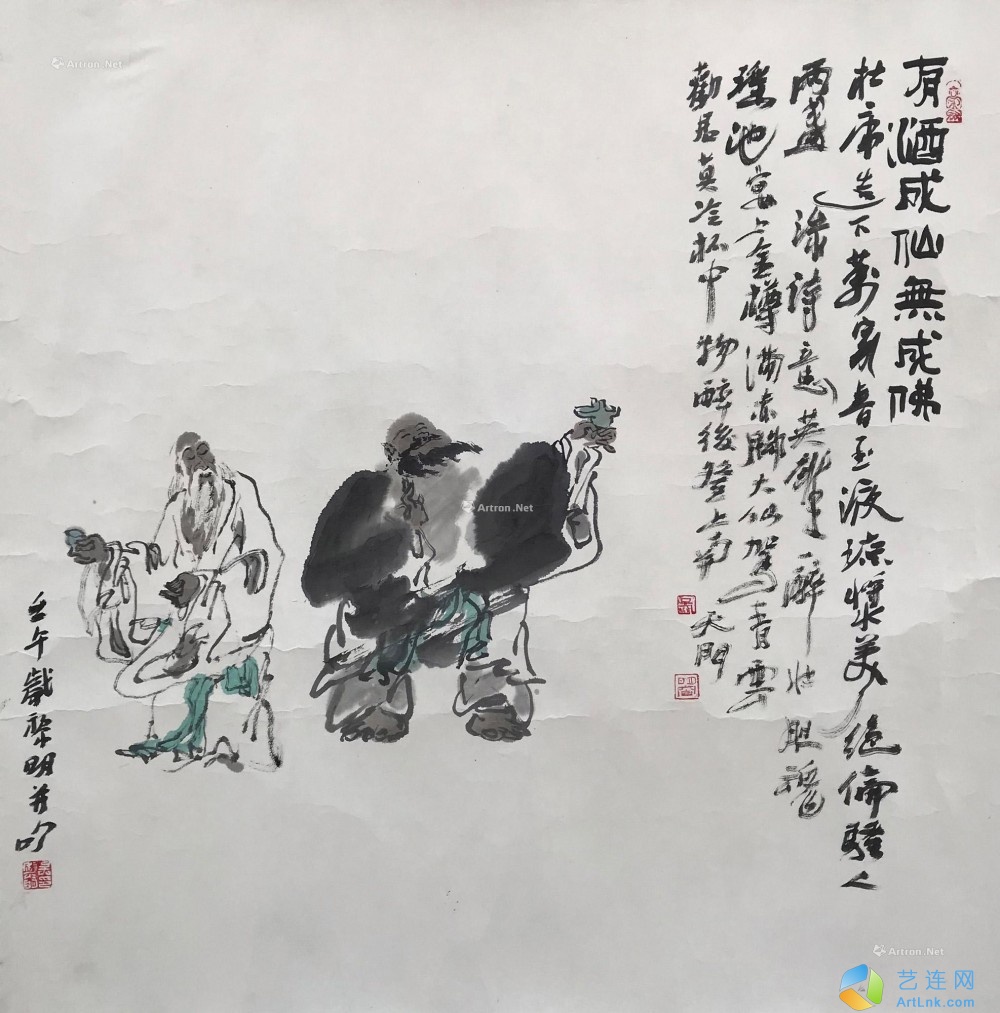 有酒成仙無成佛
杜康造下萬家春玉液琼漿美絕倫騷人
两盞添詩意英雄一醉壯胆魂
瑤池宴上金樽滿赤腳大仙駕青雲
勸君莫冷杯中物醉後登上南天門
壬午歲黎明并吟
Artron.Net
Artron.Net
Artron.Net
艺连网
ArtLnk.com